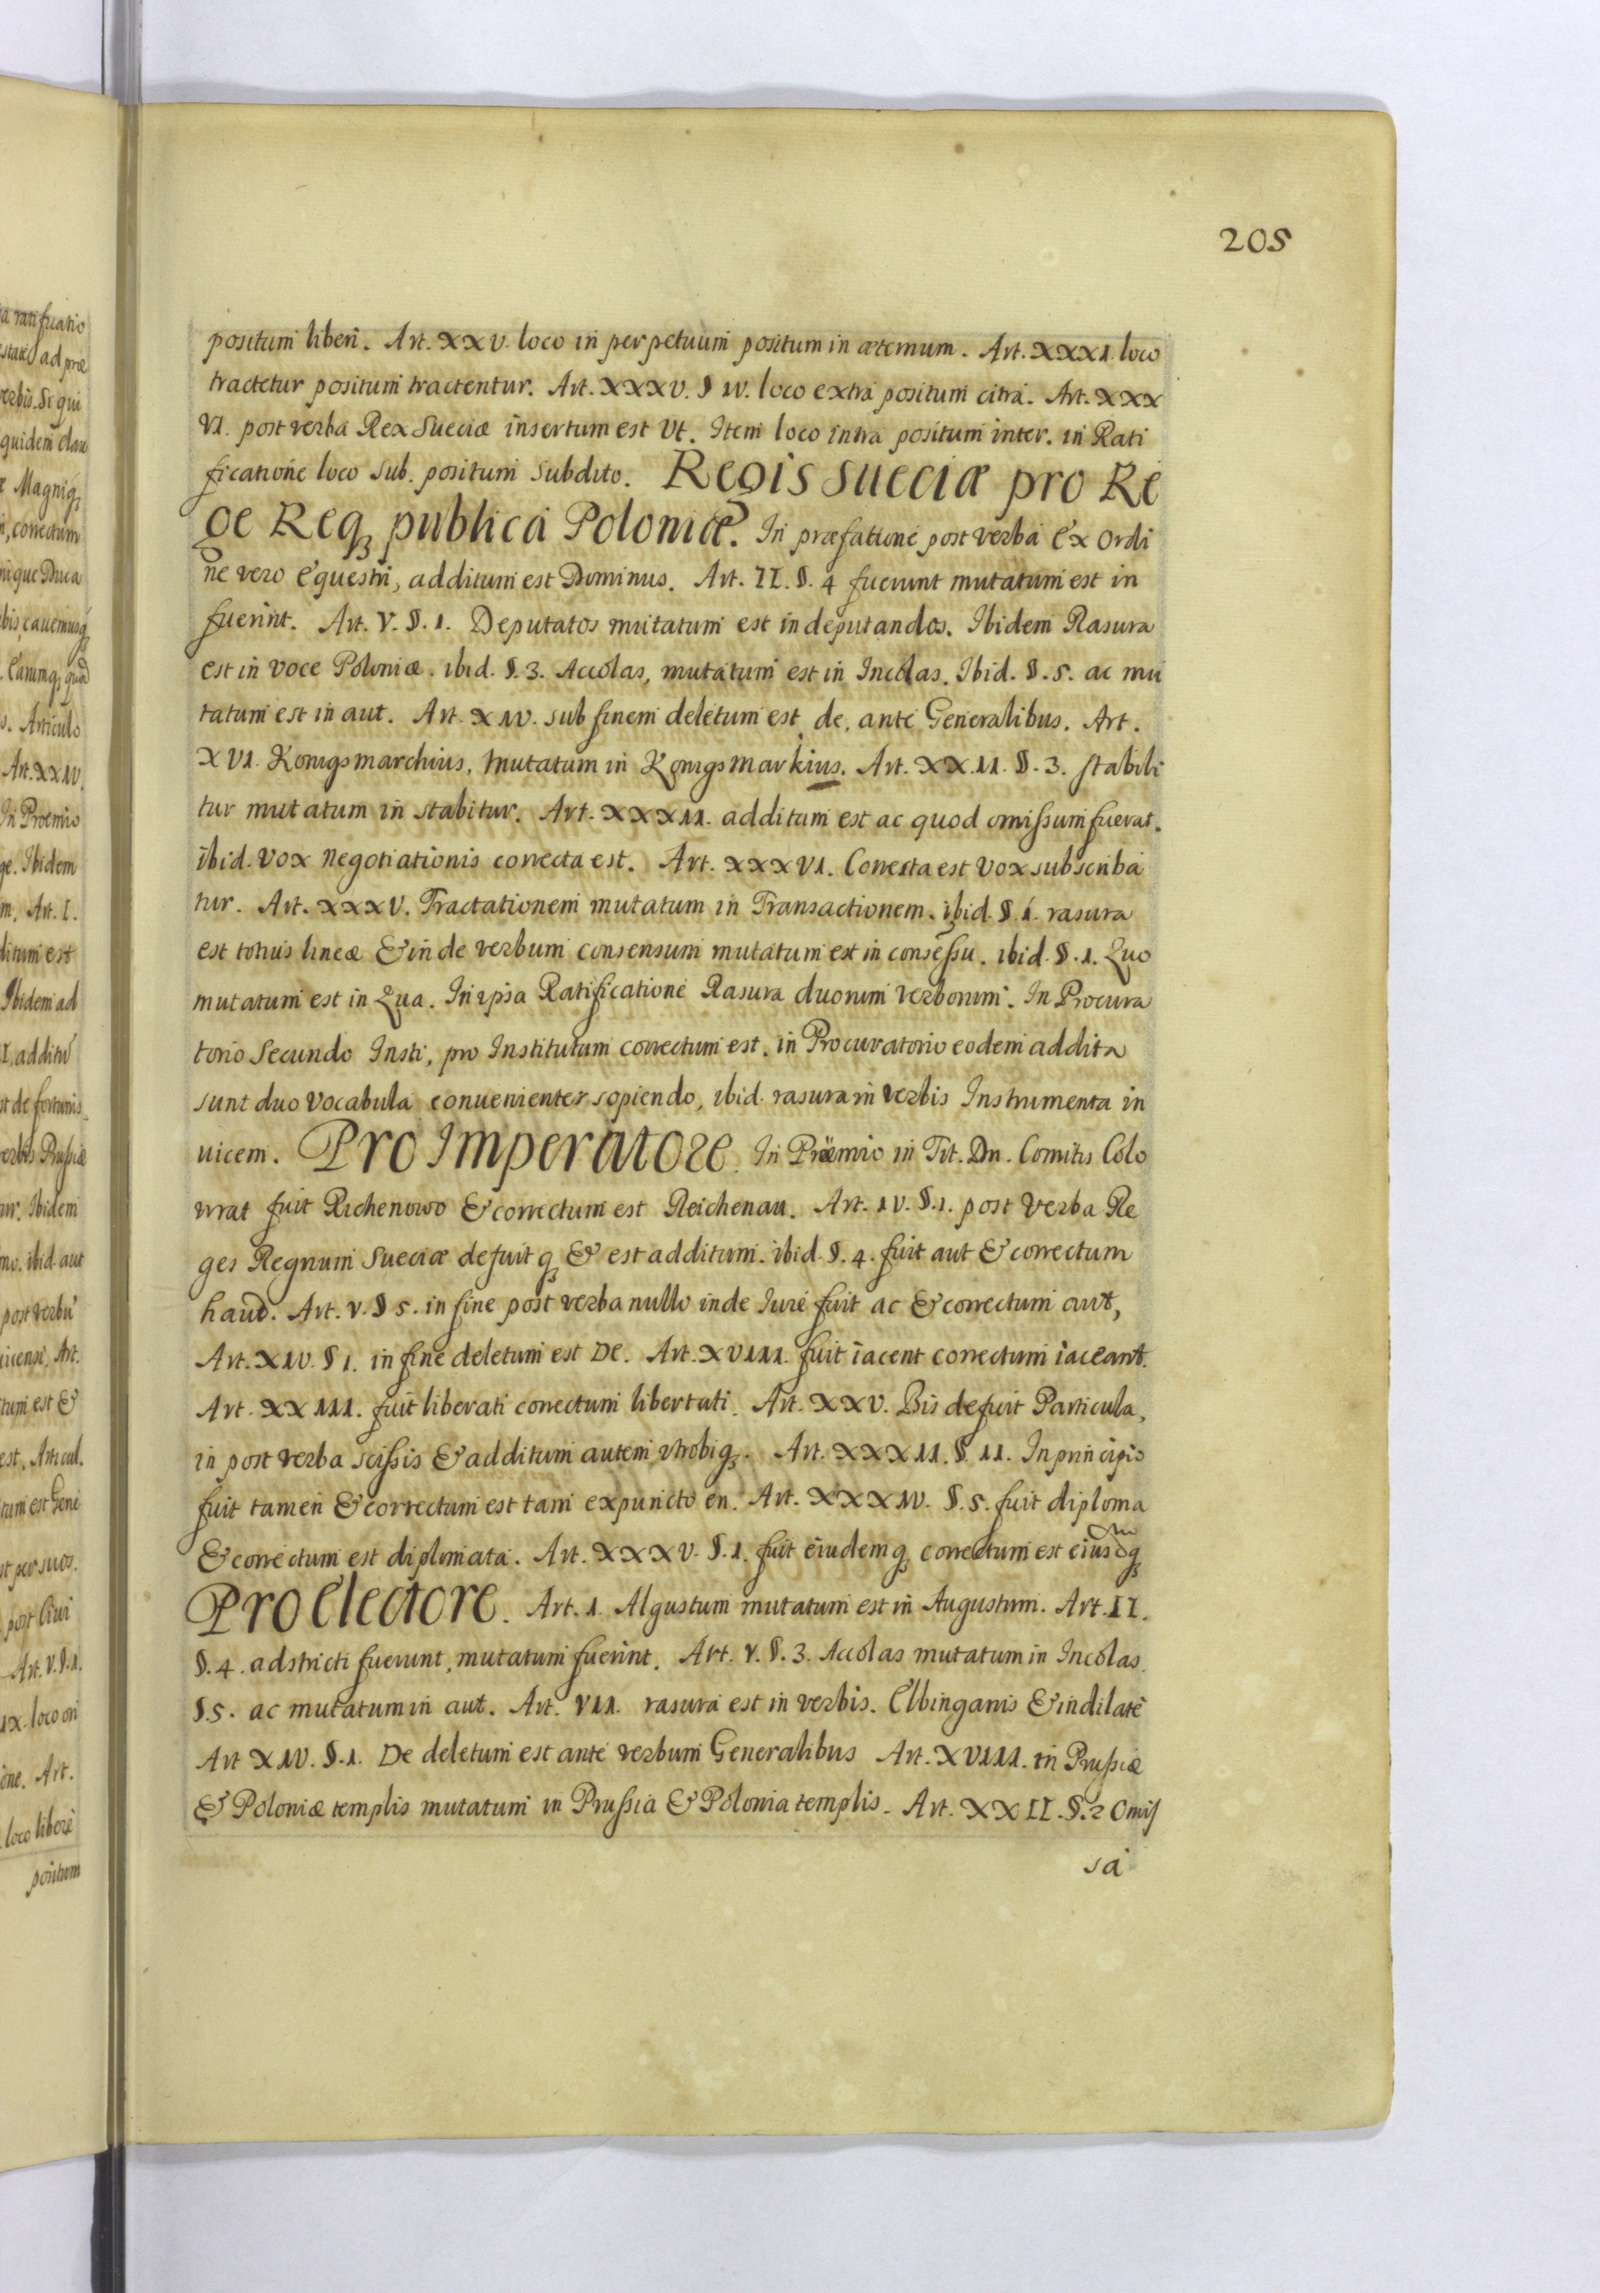 205
positum liberi. Art. XXV. loco in perpetuum positum in æternum. Art. XXXI. loco
tractetur positum tractentur. Art. XXXV. § IV. loco extra positum citra. Art. XXX
VI. post verba Rex Sueciæ insertum est Vt. Item loco intra positum inter. in Rati
ficatione loco sub. positum subdito. Regis Sueciæ pro Re
ge Reqꝫ publica Poloniæ. In præfatione post verba Ex Ordi
ne vero Equestri, additum est Dominus. Art. II. §. 4 fuerunt mutatum est in
fuerint. Art. V. §. 1. Deputatos mutatum est in deputandos. Ibidem Rasura
est in voce Poloniæ. ibid. §. 3. Accolas, mutatum est in Incolas. Ibid. §. 5. ac mu
tatum est in aut. Art. XIV. sub finem deletum est, de, ante Generalibus. Art.
XVI. Konigsmarchius, mutatum in Konigsmarkius. Art. XXII. §. 3. stabili
tur mutatum in stabitur. Art. XXXII. additum est ac quod omissum fuerat.
ibid. vox negotiationis correcta est. Art. XXXVI. Correcta est vox subscriba
tur. Art. XXXV. Tractationem mutatum in Transactionem. ibid. §. 1. rasura
est totius lineæ & inde verbum consensum mutatum est in consessu. ibid. §. 1. Quo
mutatum est in Qua. In ipsa Ratificatione Rasura duorum verborum. In Procura
torio Secundo Insti, pro Institutum correctum est. in Procuratorio eodem addita
sunt duo vocabula convenienter sopiendo, ibid. rasura in verbis Instrumenta in
uicem. Pro Imperatore. In Prœmio in Tit. Dn. Comitis Colo
wrat fuit Richenowo & correctum est Reichenau. Art. IV. §. 1. post verba Re
ges Regnum Sueciæ defuit qꝫ & est additum. ibid. §. 4. fuit aut & correctum
haud. Art. V. § 5. in fine post verba nullo inde Iure fuit ac & correctum aut,
Art. XIV. § 1. in fine deletum est De. Art. XVIII. fuit iacent correctum iaceant.
Art. XXIII. fuit liberati correctum libertati. Art. XXV. Bis defuit Particula,
in post verba scissis & additum autem vtrobiqꝫ. Art. XXXII. §. II. In principio
fuit tamen & correctum est tam expuncto en. Art. XXXIV. §. 5. fuit diploma
& correctum est diplomata. Art. XXXV. §. 1. fuit eiudemqꝫ correctum est eiusdqꝫ
Pro Electore. Art. I. Algustum mutatum est in Augustum. Art. II.
§. 4. adstricti fuerunt, mutatum fuerint. Art. V. §. 3. Accolas mutatum in Incolas.
§. 5. ac mutatum in aut. Art. VII. rasura est in verbis. Elbinganis & indilate
Art XIV. §. 1. De deletum est ante verbum Generalibus Art. XVIII. in Prussiæ
& Poloniæ templis mutatum in Prussia & Polonia templis. Art. XXII. §. 2 Omis
sa